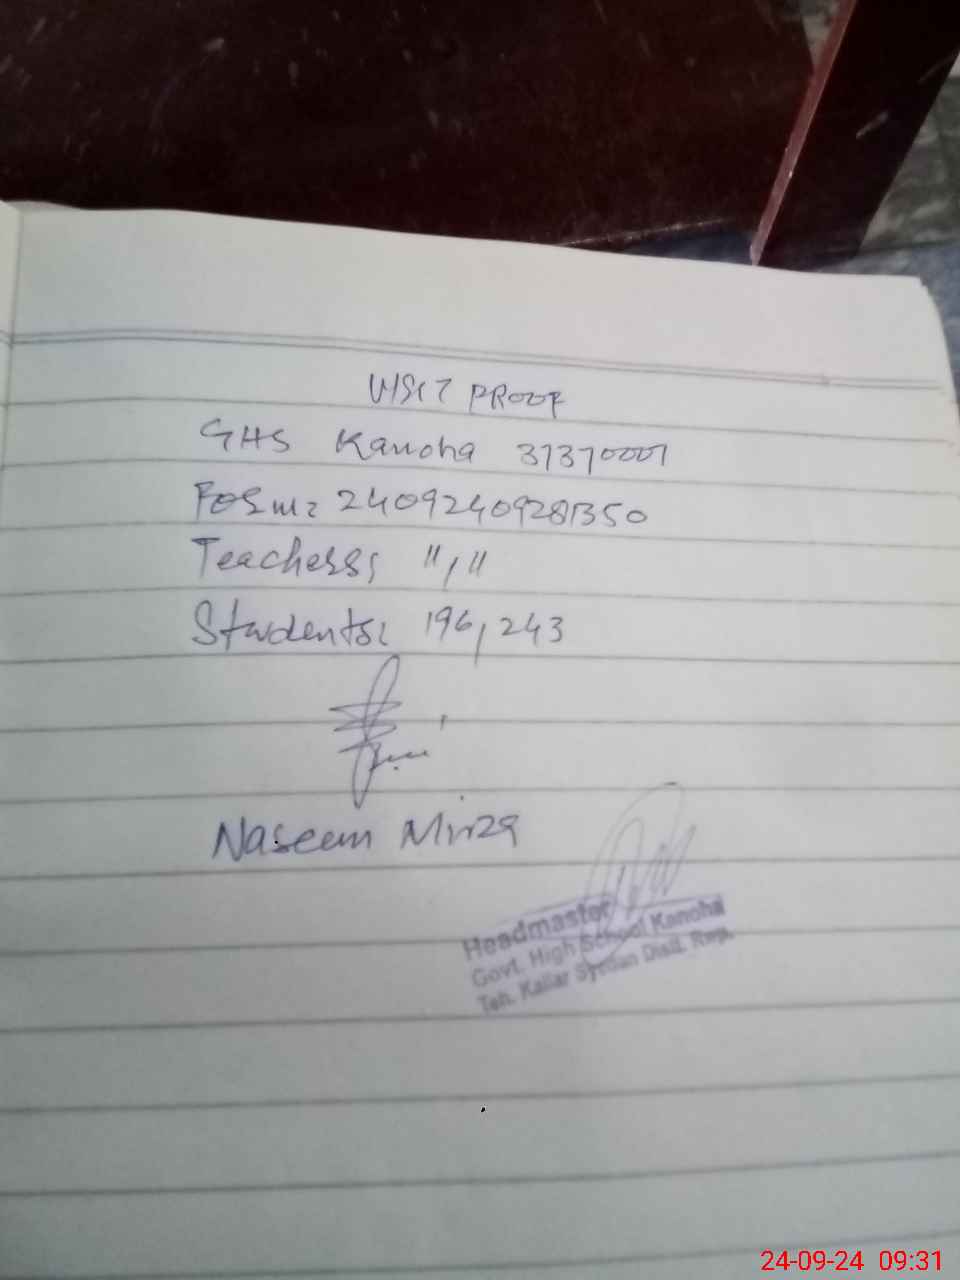 VISIT PROOF
GHS Kanoha 37370001
24092409281350
Teachers: 11, 11
Students: 196, 243
Naseem Mirza
Headmaster
Govt. High School Kanoha
Teh. Kallar Syedan Distt. Rwp.
24-09-24 09:31